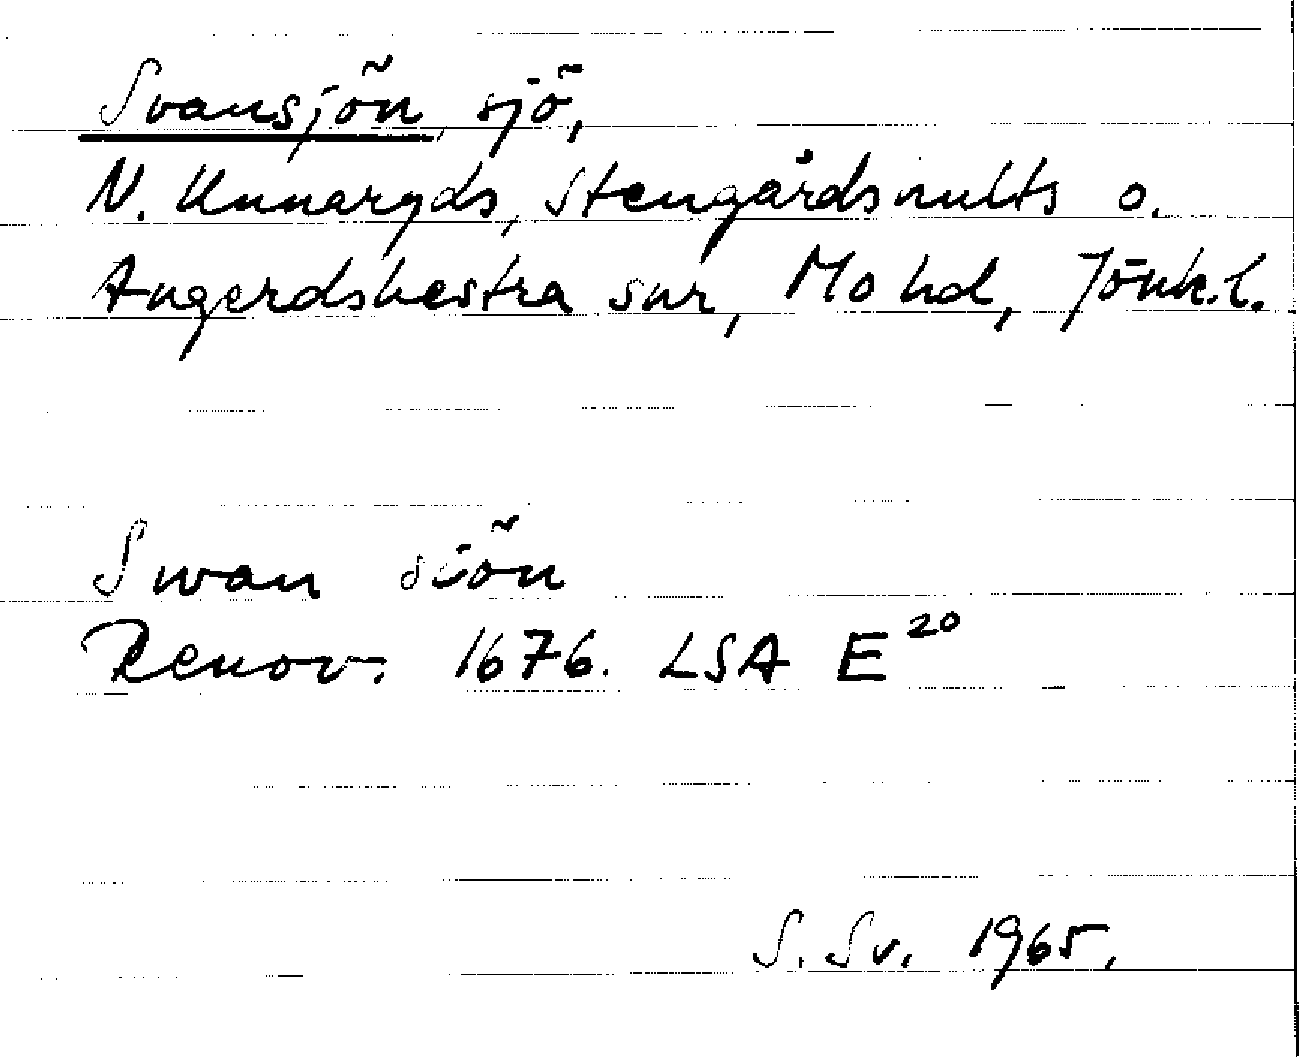 Svansjön, sjö,
N. Unnaryds, Stengårdshults o.
Angerdshestra snr, Mo hd, Jönk.l.
Swan siön
Renov. 1676. LSA E²⁰
S. Sv. 1965.